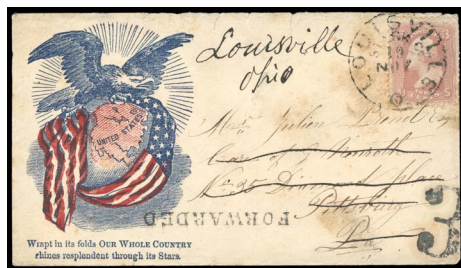 Louisville
Ohio
LOUISVILLE
O
UNITED STATES
Julian
Care of
No 95 Diamond place
Pittsburg
Pa
FORWARDED
Wrapt in its folds OUR WHOLE COUNTRY
rhines resplendent through its Stars.